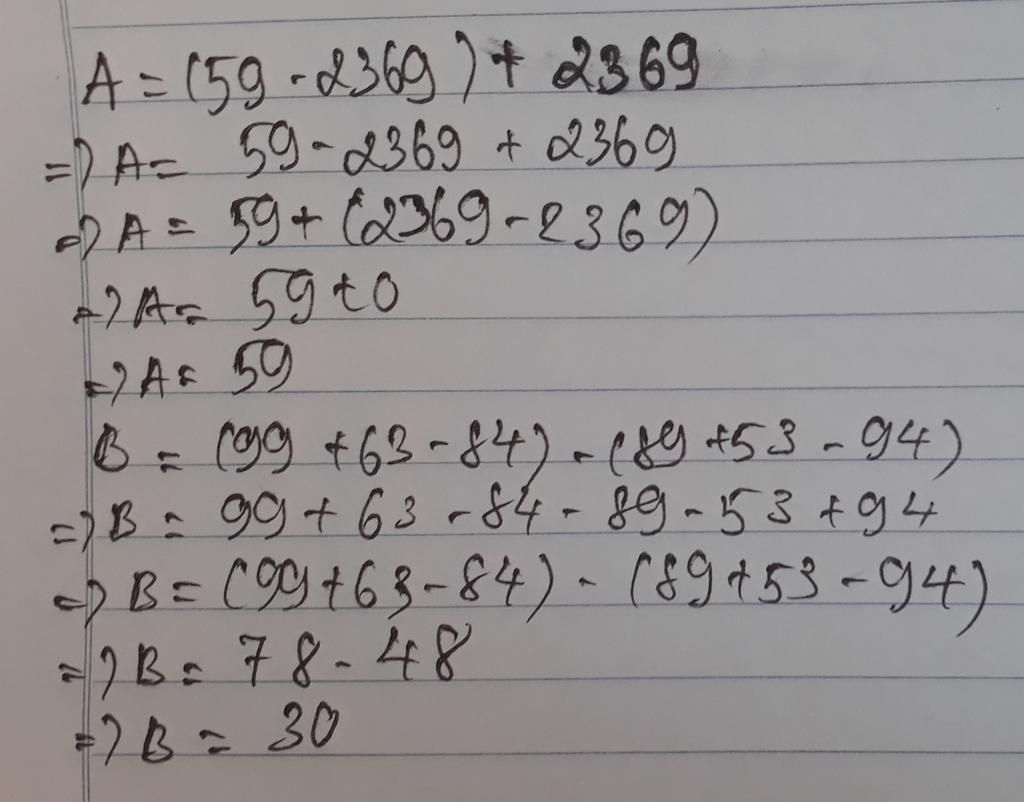 A = (59 - 2369) + 2369
=> A = 59 - 2369 + 2369
=> A = 59 + (2369 - 2369)
=> A = 59 + 0
=> A = 59
B = (99 + 63 - 84) - (89 + 53 - 94)
=> B = 99 + 63 - 84 - 89 - 53 + 94
=> B = (99 + 63 - 84) - (89 + 53 - 94)
=> B = 78 - 48
=> B = 30